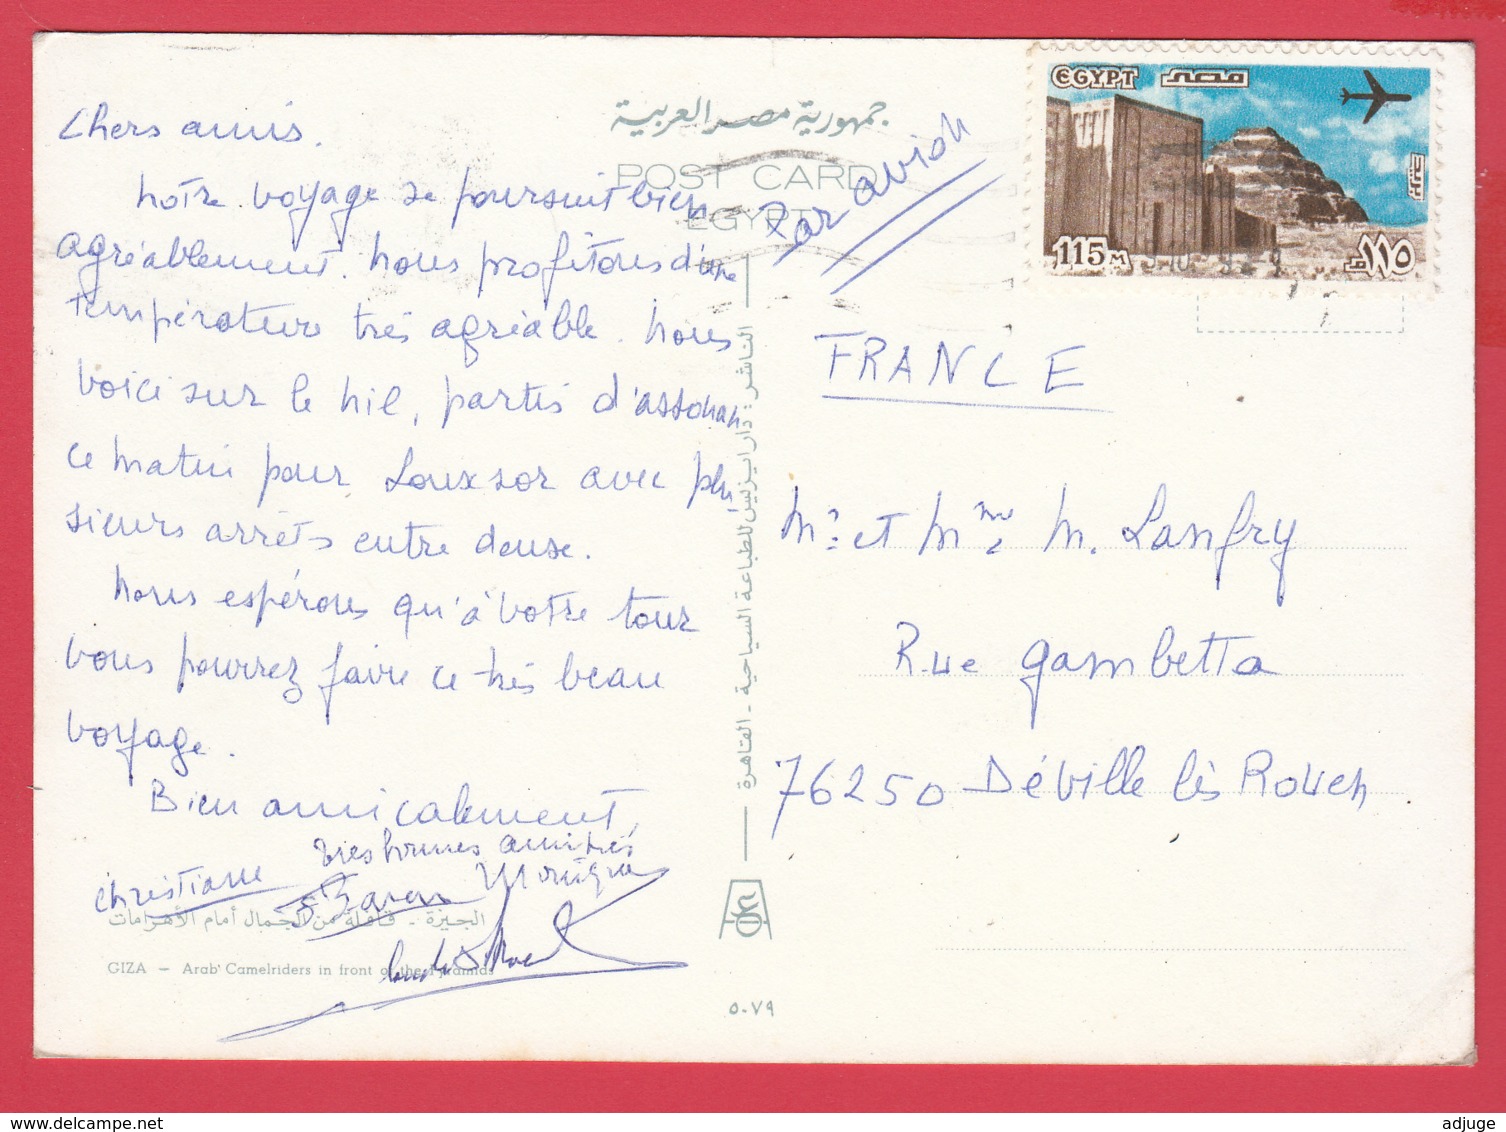 Chers amis.
Notre voyage se poursuit bien
agréablement. Nous profitons d'une
température très agréable. Nous
voici sur le Nil, partis d'Assouan
ce matin pour Louxsor avec plu
sieurs arrêts entre deux.
Nous espérons qu'à votre tour
vous pourrez faire ce très beau
voyage.
Bien amicalement,
très bonnes amitiés
Christiane
Monique
الجيزة - قافلة من الجمال أمام الأهرامات
GIZA — Arab Camelriders in front of the Pyramids
جمهورية مصر العربية
POST CARD
EGYPT
Par avion
الناشر: دار ايزيس للطباعة السياحية - القاهرة
٥٠٧٩
EGYPT مصر
115 M
١١٥ م
FRANCE
Mr et Mme M. Lanfry
Rue Gambetta
76250 Déville lès Rouen
www.delcampe.net
adjuge